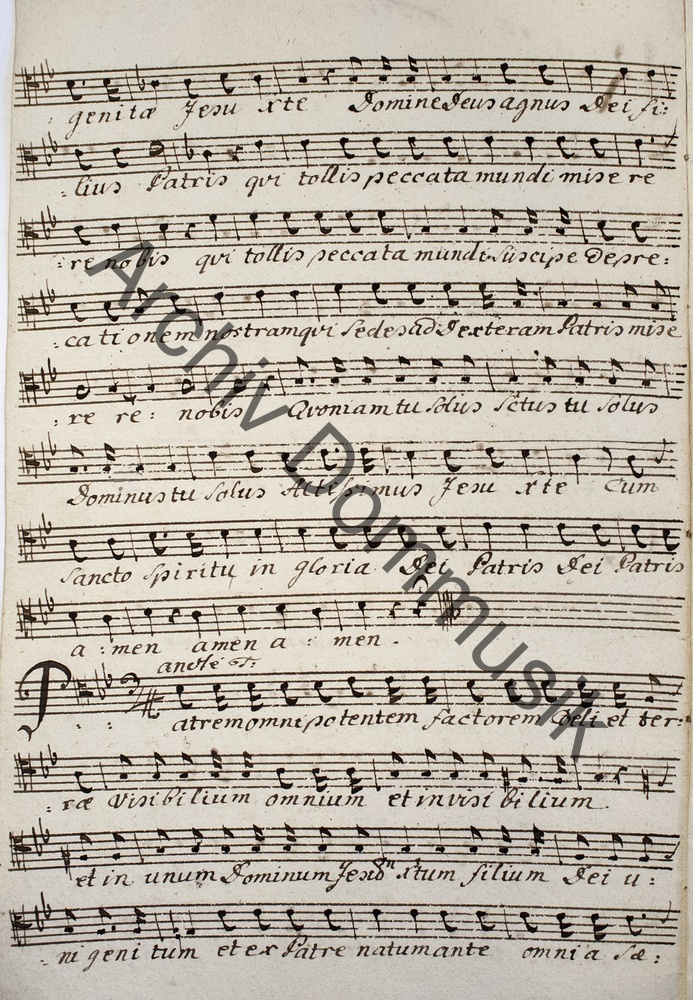 : genitæ Jesu xte Domine Deus agnus Dei fi:
: lius Patris qvi tollis peccata mundi mise re
: re nobis qvi tollis peccata mundi suscipe Depre:
: cationem nostram qvi sedes ad Dexteram Patris mise
: re re: nobis Qvoniam tu solus sctus tu solus
Dominus tu solus Altissimus Jesu xte Cum
sancto spiritu in gloria Dei Patris Dei Patris
a: men amen a: men.
Patrem omnipotentem factorem Cæli et ter:
: ræ visibilium omnium et invisi bilium.
et in unum Dominum Jesum xtum filium Dei u:
: ni geni tum et ex Patre natum ante omnia sæ:
Archiv Dommusik